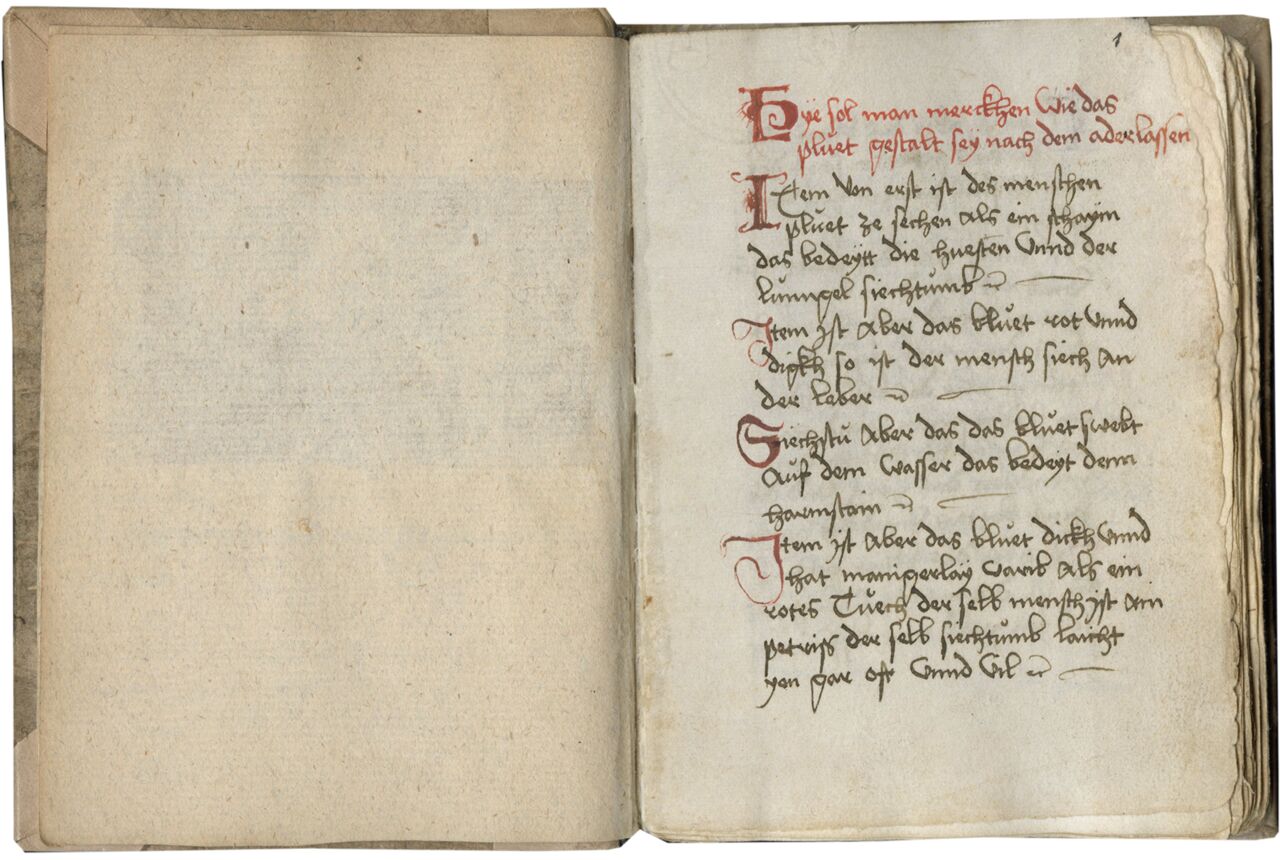 1
Hye sol man merckhen wie das
pluet gestalt sey nach dem aderlassen
Item von erst ist des menschen
pluet ze sechen als ein schaym
das bedeytt die huesten vnnd der
lunngel siechtumb
Item yst aber das bluet rot vnnd
digkh so ist der mensch siech an
der leber
Siechstu aber das das bluet swebt
auf dem wasser das bedeyt denn
harnnstain
Item yst aber das bluet dickh vnnd
hat manigerlay varib als ein
rotes Tuech der selb mensch yst am
petriss der selb siechtumb laicht
yen gar oft vnnd vil